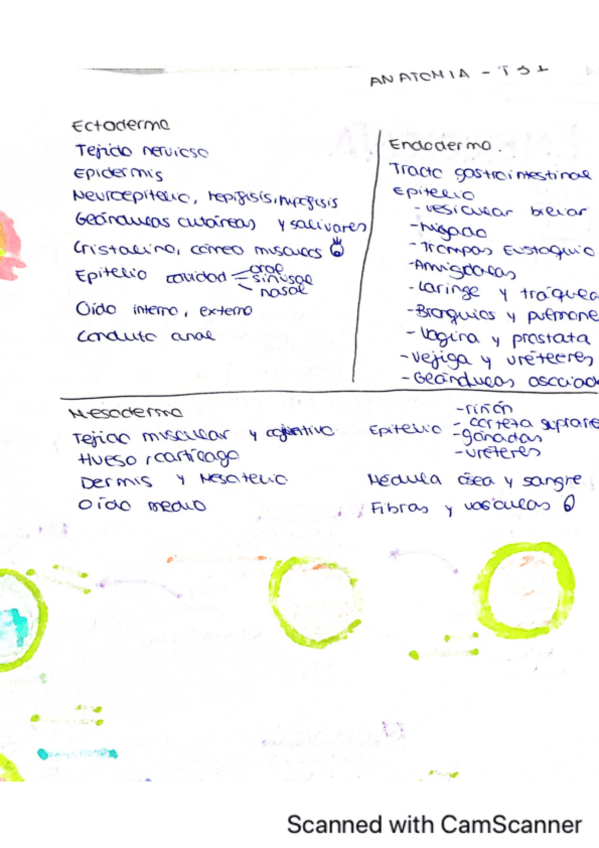 ANATOMIA - T31
Ectodermo
Tejido nervioso
Epidermis
Neuroepitelio, hepífisis, hipófisis
Glándulas cutáneas y salivares
Cristalino, córneo músculos
Epitelio cavidad oral
sinusal
nasal
Oído interno, externo
Conducto anal
Endodermo.
Tracto gastrointestinal
Epitelio
- vesicular biliar
- Hígado
- Trompas Eustaquio
- Amígdalas
- Laringe y tráquea
- Bronquios y pulmone
- Vagina y próstata
- Vejiga y uréteres
- Glándulas asociad
Mesodermo
Tejido muscular y conjuntivo
Hueso, cartílago
Dermis y Mesotelio
Oído medio
Epitelio - riñón
- corteza suprare
- gónadas
- uréteres
Médula ósea y sangre
Fibras y vasculas
Scanned with CamScanner